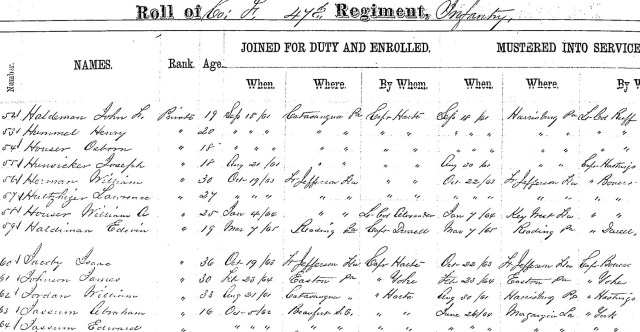 Roll of Co. F. 47th Regiment, Infantry.
JOINED FOR DUTY AND ENROLLED. MUSTERED INTO SERVICE
Number. NAMES. Rank. Age. When. Where. By Whom. When. Where. By
52 Haldeman John Private 19 Sep 18/61 Catasauqua Pa Capt Harte Sep 18/61 Harrisburg Pa Lt Col Ruff
53 Hummel Henry " 20 " " " " " " "
54 Houser Osborn " 18 " " " " " " "
55 Hunsicker Joseph " 18 Aug 21/61 " " Aug 30/61 " Capt Hastings
56 Herman William " 30 Oct 19/63 Ft Jefferson Fla " Oct 22/63 Ft Jefferson Fla " Bowers
57 Lawrence " 27 " " " " " "
58 Houser William A " 25 Jan 4/64 " Lt Col Alexander Jan 7/64 Key West Fla "
59 Haldiman Edwin " 19 Mar 7/65 Reading Pa Capt Mar 7/65 Reading Pa "
60 Isaac " 36 Oct 19/63 Ft Jefferson Fla Capt Harte Oct 22/63 Ft Jefferson Fla Capt Bowers
61 Johnson James " 30 Feb 23/64 Easton Pa " Yohe Feb 23/64 Easton Pa " Yohe
62 Jordan William " 33 Aug 21/61 Catasauqua " " Harte Aug 30/61 Harrisburg Pa " Hastings
63 Jassum Abraham " 16 Oct 5/62 Beaufort S.C. " " June 24/64 La "
64 Jassum Edward " " " " " " "